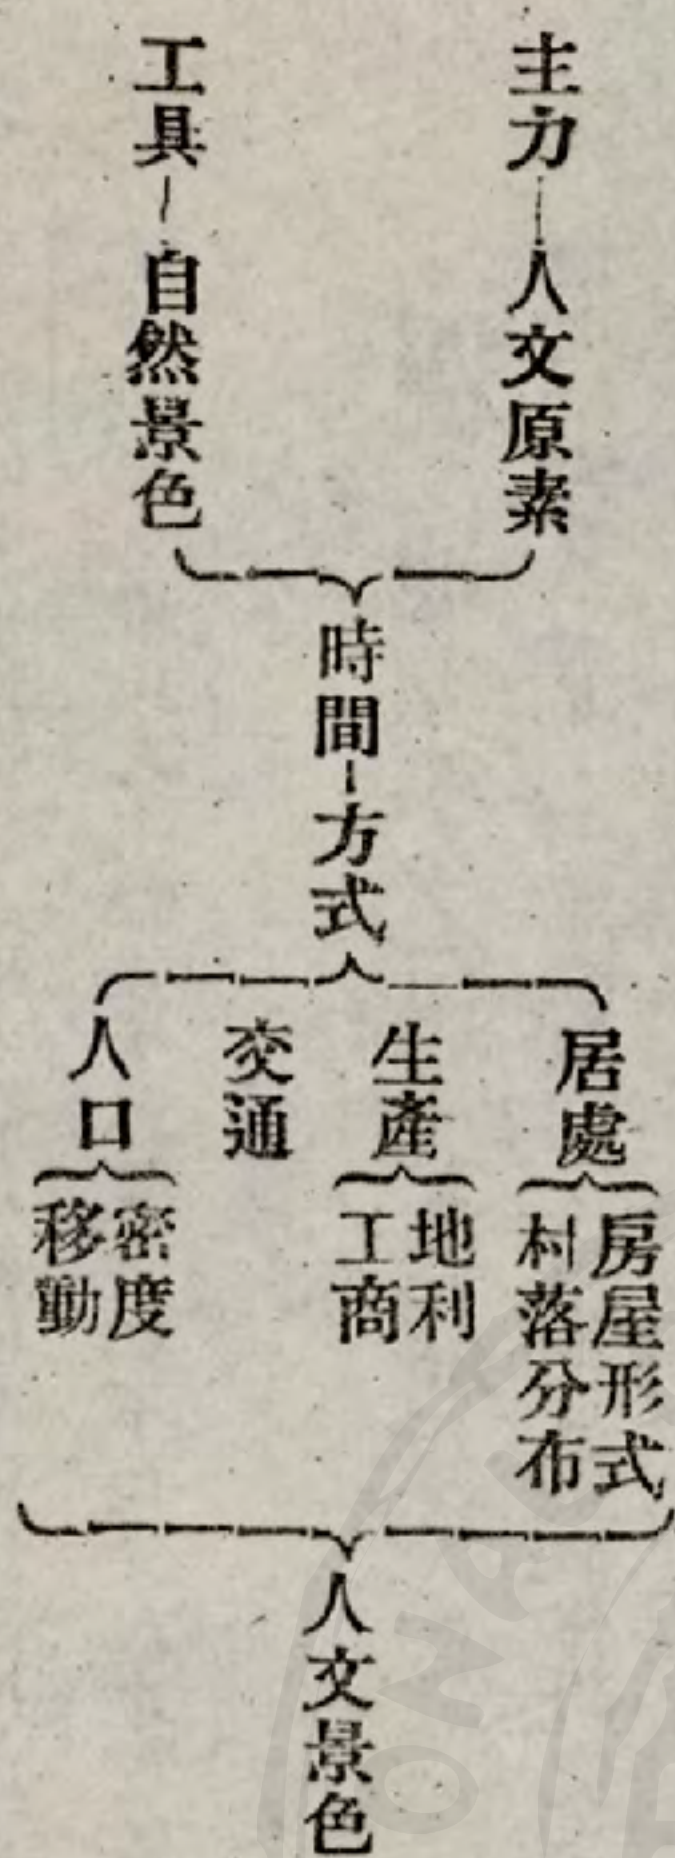 主力—人文原素
工具—自然景色
時間—方式
居處
房屋形式
村落分布
生產
地利
工商
交通
人口
密度
移動
人文景色